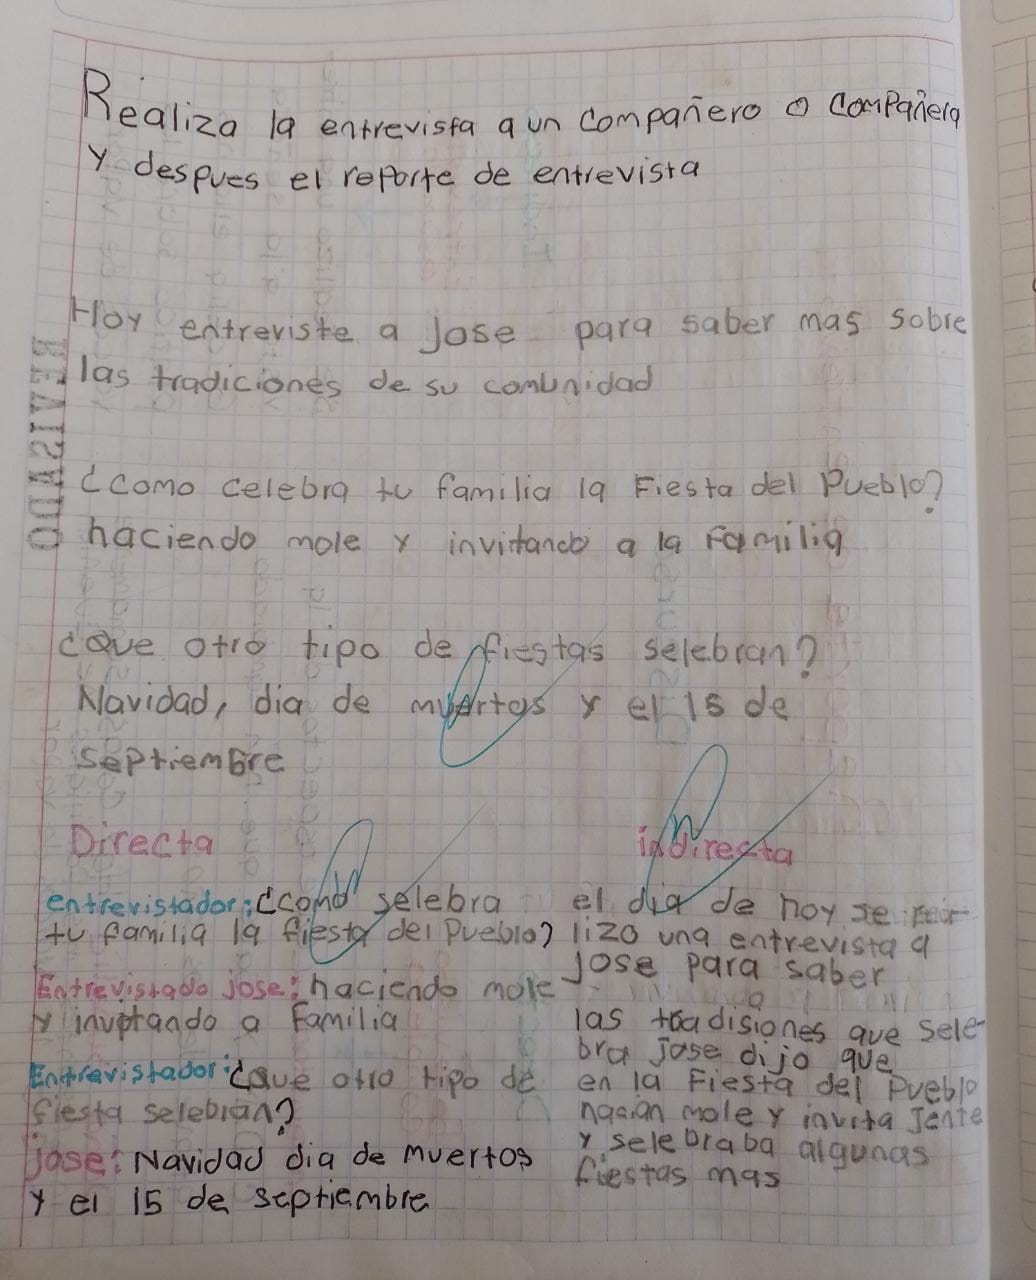 Realiza la entrevista a un compañero o compañera
y despues el reporte de entrevista
Hoy entreviste a Jose para saber mas sobre
las tradiciones de su comunidad
REVISADO
¿Como celebra tu familia la Fiesta del Pueblo?
haciendo mole y invitando a la Familia
¿Que otro tipo de fiestas selebran?
Navidad, dia de muertos y el 15 de
septiembre
Directa
entrevistador: ¿como selebra
tu familia la fiesta del Pueblo?
Entrevistado jose: haciendo mole
y invptando a Familia
Entrevistador: ¿Que otro tipo de
fiesta selebran?
jose: Navidad dia de muertos
y el 15 de septiembre
indirecta
el dia de hoy se rea-
lizo una entrevista a
Jose para saber
las tradisiones que sele-
bra Jose dijo que
en la Fiesta del Pueblo
hacian mole y invita Jente
y selebraba algunas
fiestas mas